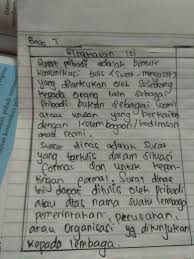 Bab 7
Ringkasan isi
Surat pribadi adalah bentuk
komunikasi tulis (surat-menyurat)
yang dilakukan oleh seseorang
kepada orang lain sebagai
pribadi bukan sebagai wakil
atau urusan yang berkaitan
dengan /kedinasan
atau resmi.
Surat dinas adalah Surat
yang tertulis dalam situasi
formal dan untuk kepen-
tingan formal, Surat dinas
ini dapat ditulis oleh pribadi
atau atas nama suatu lembaga
pemerintahan, perusahaan,
atau Organisasi yg ditunjukan
kepada lembaga.